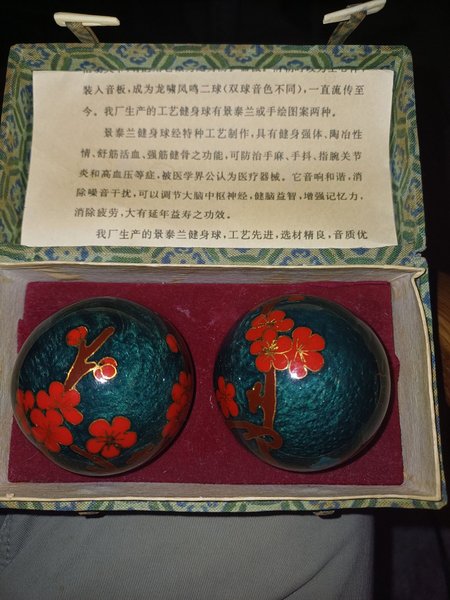 装入音板,成为龙啸凤鸣二球(双球音色不同),一直流传至
今。我厂生产的工艺健身球有景泰兰或手绘图案两种。
景泰兰健身球经特种工艺制作,具有健身强体、陶冶性
情、舒筋活血、强筋健骨之功能,可防治手麻、手抖、指腕关节
炎和高血压等症,被医学界公认为医疗器械。它音响和谐,消
除噪音干扰,可以调节大脑中枢神经,健脑益智,增强记忆力,
消除疲劳,大有延年益寿之功效。
我厂生产的景泰兰健身球,工艺先进,选材精良,音质优